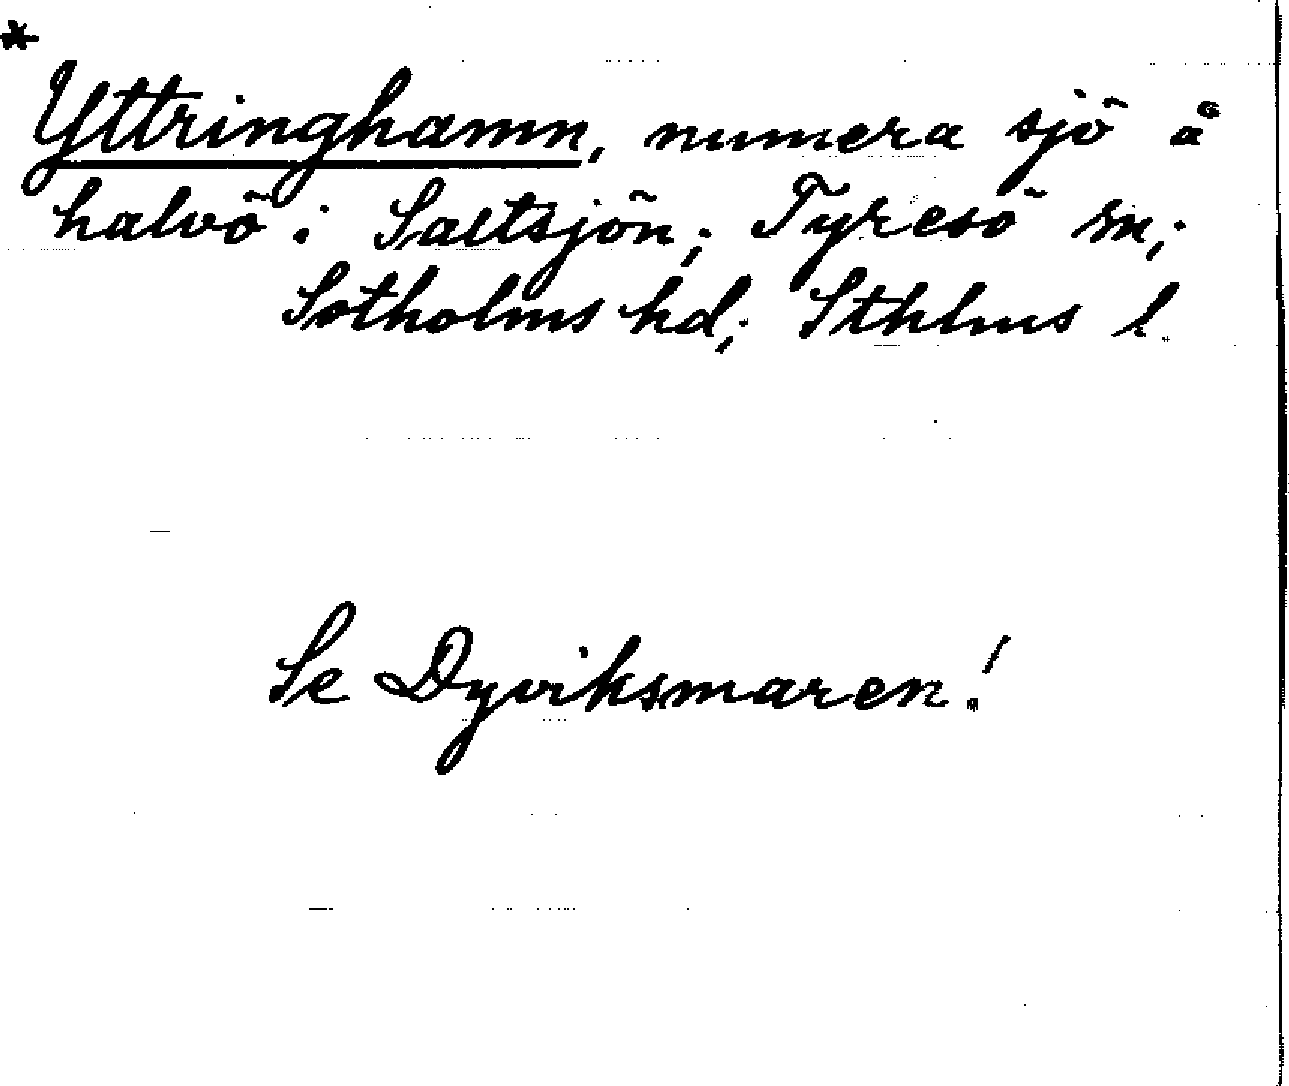 *
Yttringhamn, numera sjö å
halvö i Saltsjön; Tyresö sn;
Sotholms hd; Sthlms l.
Se Dyviksmaren!